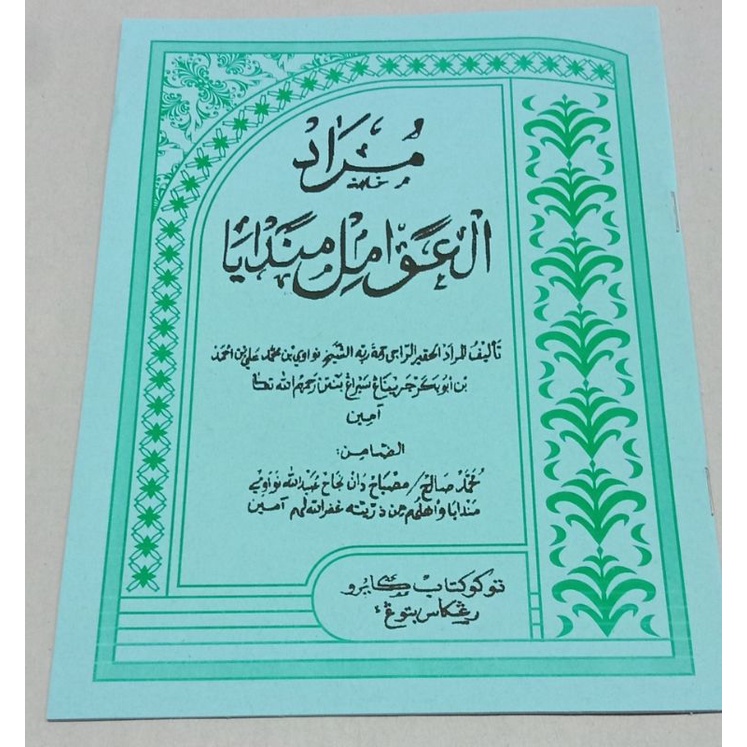 مُرَاد
العَوَامِل مَندَايَا
تأليف المراد الحقير الراجى رحمة ربه الشيخ نواوي بن محمد علي بن احمد
بن ابو بكر جريناڠ سيراڠ بنتن رحمهم الله تعالى
آمين
الضامن:
محمد صالح / مصباح دان نجاح عبد الله نواوي
مندايا واهلهم من ذريته غفر الله لهم آمين
توكو كتاب كايرو
رڠكاس بتوڠ